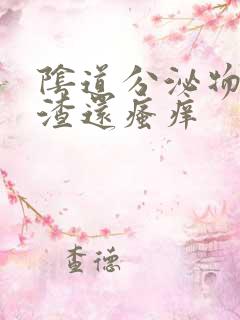 陰道分泌物
渣還瘙痒
查德